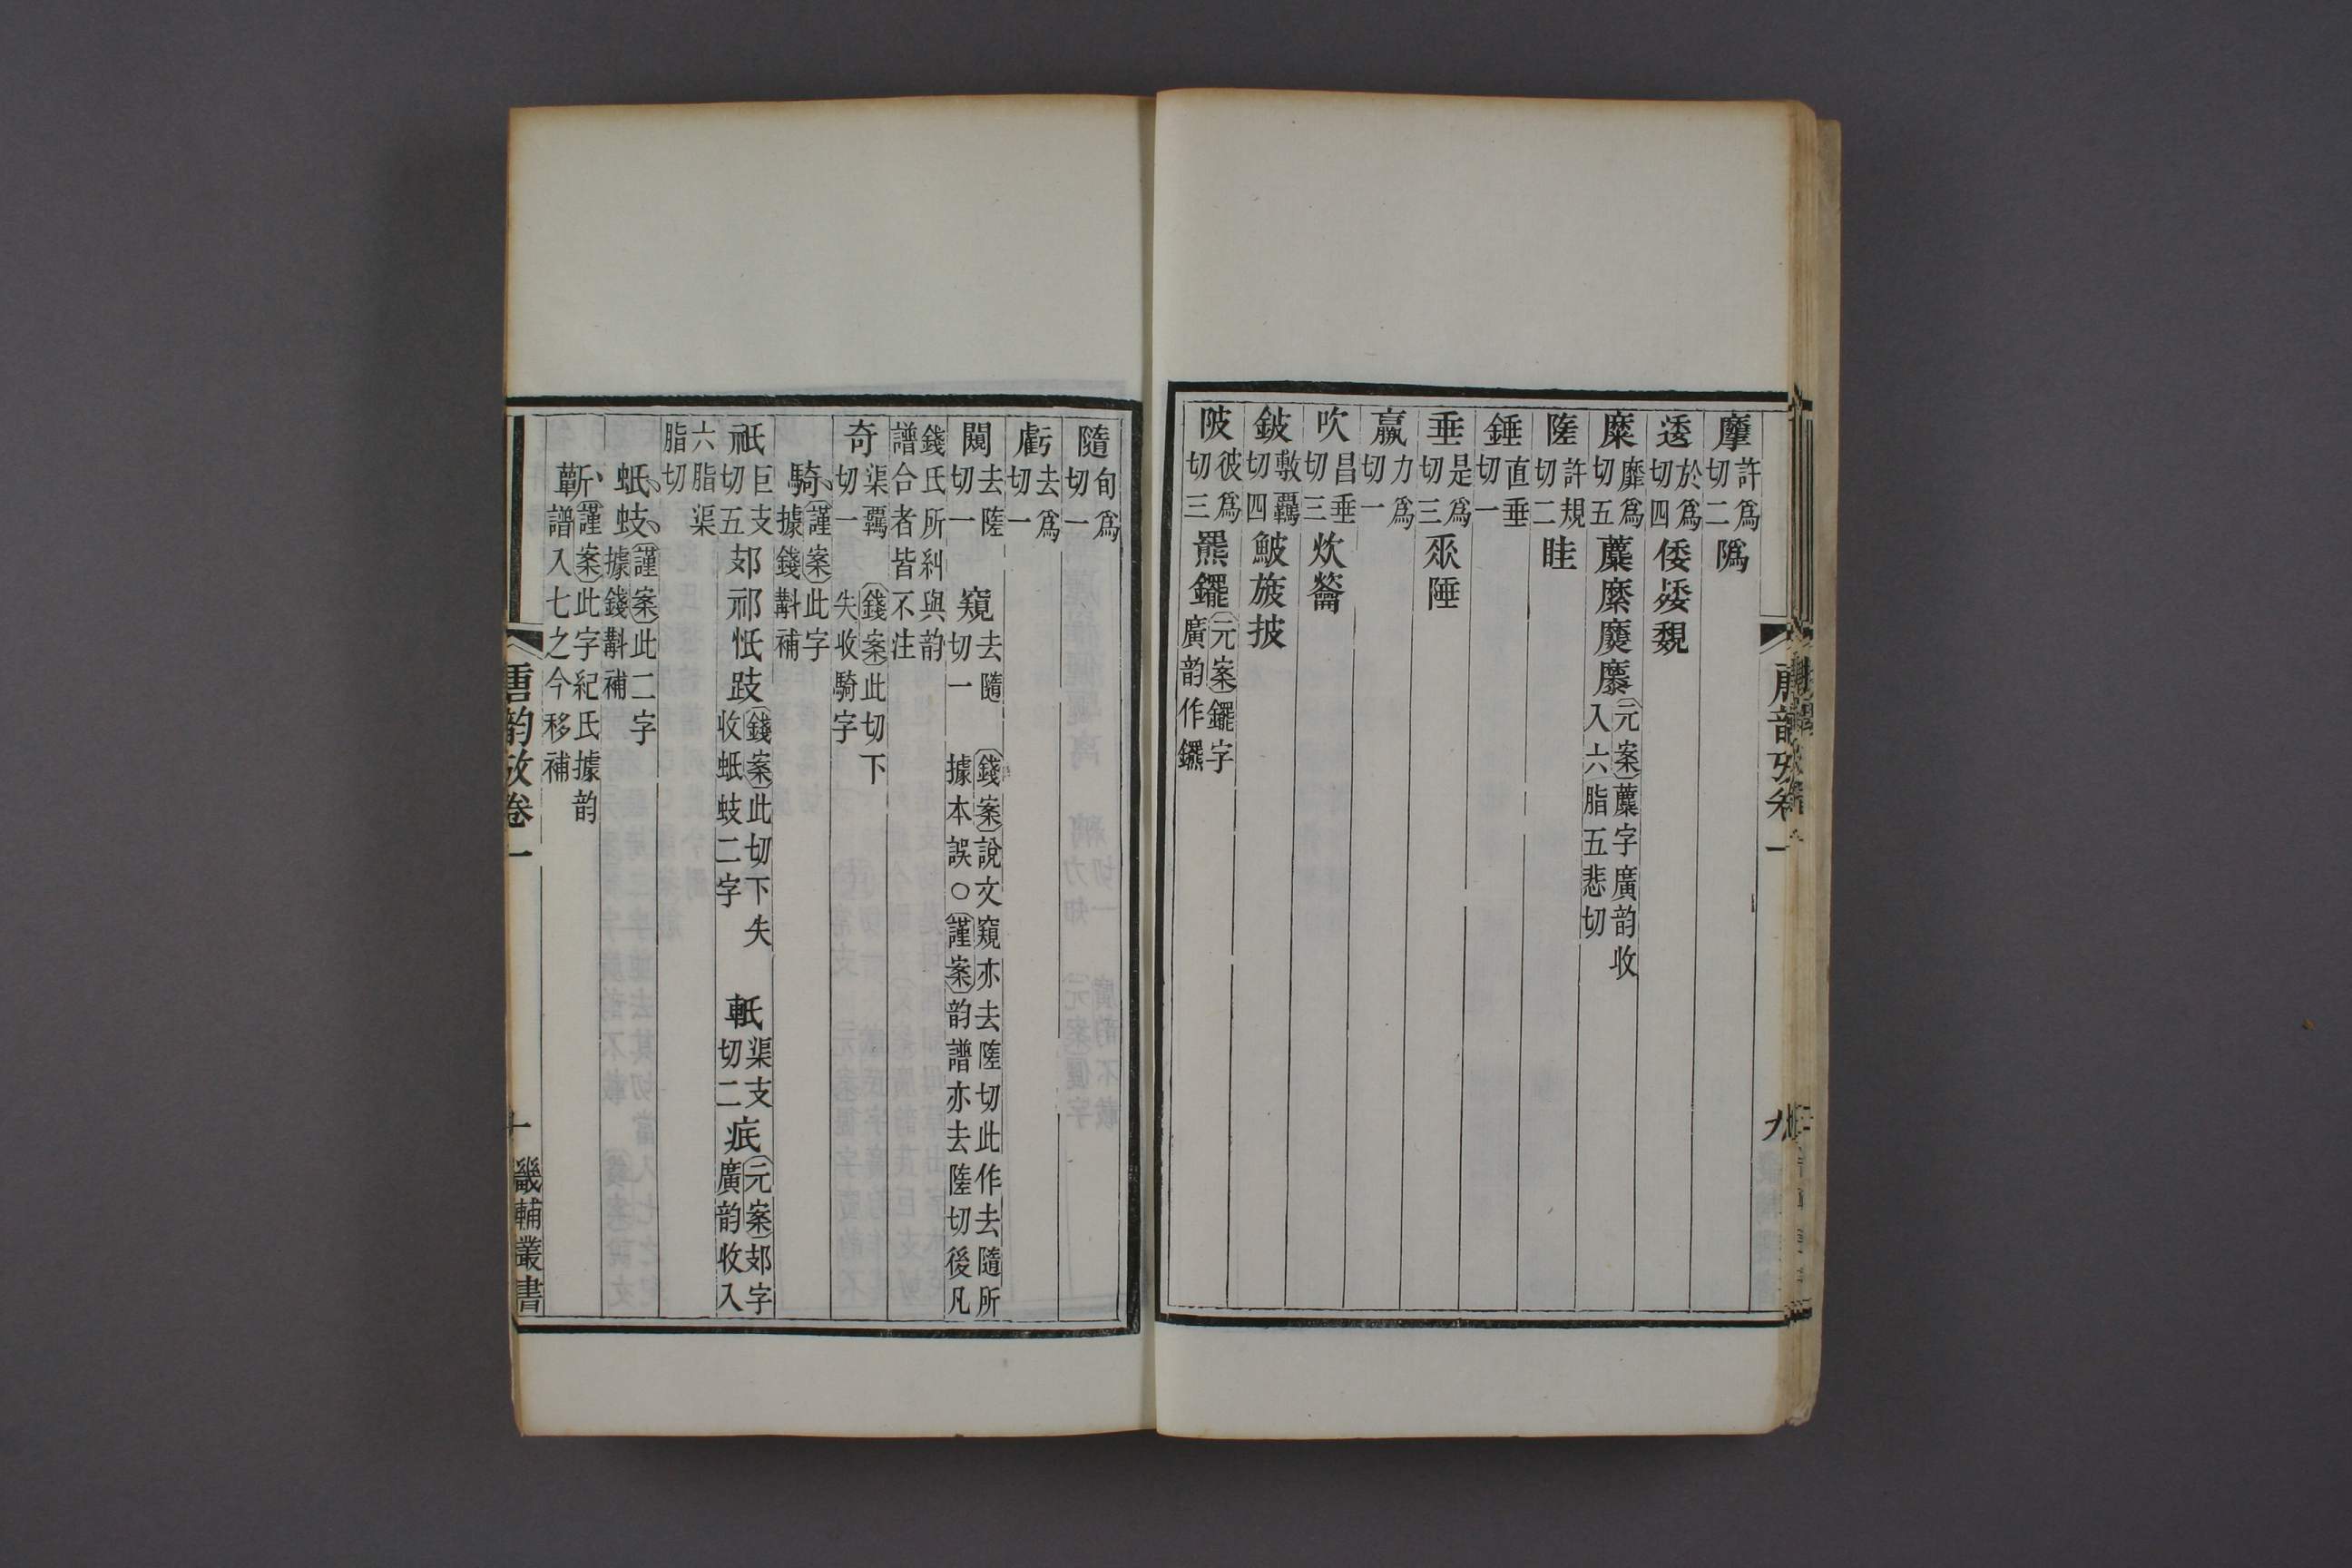 摩許爲切二隓
逶於爲切四倭娞覣
糜靡爲切五蘪縻爢𪎭元案蘪字廣韵收入六脂五悲切
隓許規切二眭
錘直垂切一
垂是爲切三𠂹陲
羸力爲切一
吹昌垂切三炊籥
鈹敷羈切四鮍旇披
陂彼爲切三羆䥯元案䥯字廣韵作鑼
唐韵攷卷一
九
隨旬爲切一
虧去爲切一
闚去隓切一　窺去隨切一　錢案說文窺亦去隓切此作去隨所據本誤○謹案韵譜亦去隓切後凡
錢氏所糾與韵譜合者皆不注
奇渠羈切一　錢案此切下失收騎字
騎謹案此字據錢斠補
祇巨支切五郂祁忯跂錢案此切下失收蚔蚑二字　軝渠支切二疧元案郂字廣韵收入
六脂渠脂切
蚔蚑謹案此二字據錢斠補
蘄謹案此字紀氏據韵譜入七之今移補
唐韵攷卷一
十
畿輔叢書